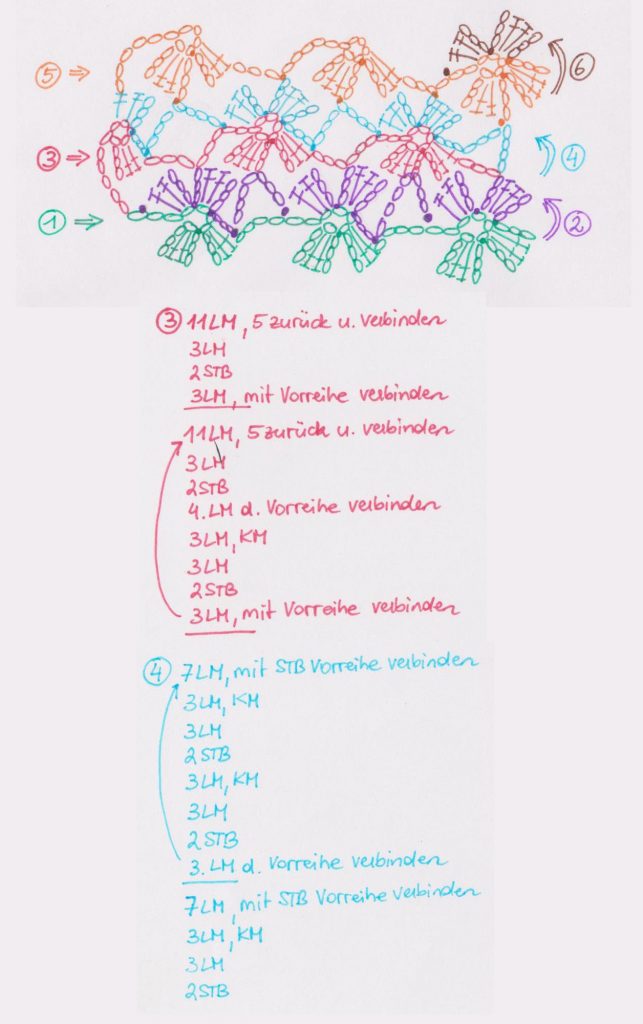 5
6
3
4
1
2
3 11LM, 5 zurück u. verbinden
3LM
2STB
3LM, mit Vorreihe verbinden
11LM, 5 zurück u. verbinden
3LM
2STB
4. LM d. Vorreihe verbinden
3LM, KM
3LM
2STB
3LM, mit Vorreihe verbinden
4 7LM, mit STB Vorreihe verbinden
3LM, KM
3LM
2STB
3LM, KM
3LM
2STB
3. LM d. Vorreihe verbinden
7LM, mit STB Vorreihe verbinden
3LM, KM
3LM
2STB